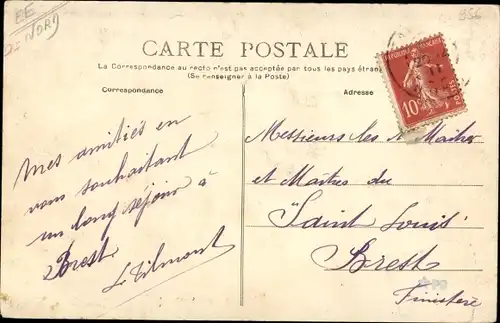 EE
NORD
956
CARTE POSTALE
La Correspondance au recto n'est pas acceptée par tous les pays étran
(Se renseigner à la Poste)
Correspondance
Adresse
RÉPUBLIQUE FRANÇAISE
10
Mes amitiés en
vous souhaitant
un long séjour à
Brest
Messieurs les
et Maîtres du
"Saint Louis"
Brest
Finistère